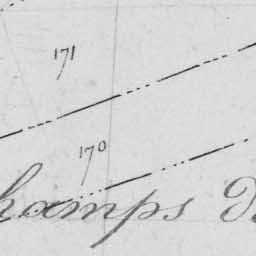 171
170
champs d